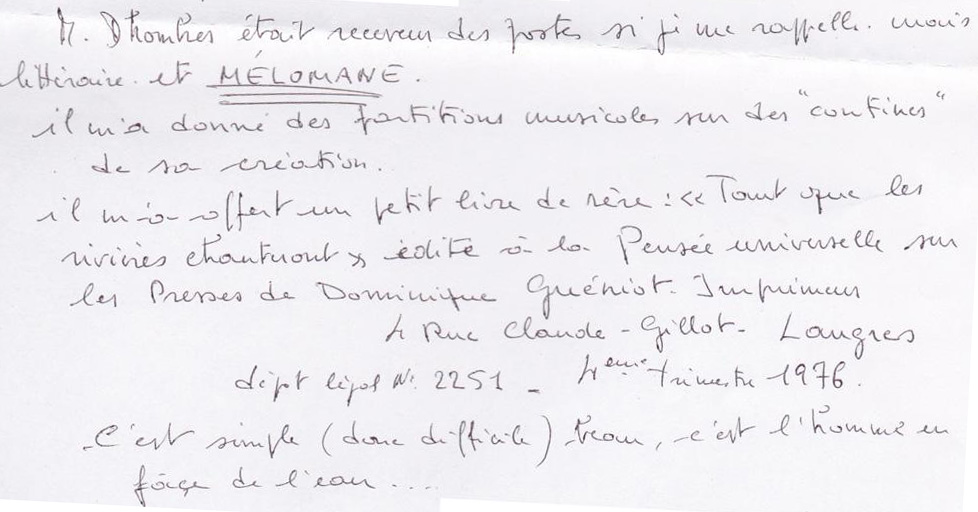 M. Dhombres était receveur des postes si je me rappelle. mais
littéraire et MÉLOMANE.
il m'a donné des partitions musicales sur des "confines"
de sa création.
il m'a offert un petit livre de rêve : « Tant que les
rivières chanteront » édité à la Pensée universelle sur
les Presses de Dominique Guéniot. Imprimeur
4 Rue Claude-Gillot - Langres
dépot légal N° 2251 - 4eme trimestre 1976.
C'est simple (donc difficile) beau, c'est l'homme en
façe de l'eau ....